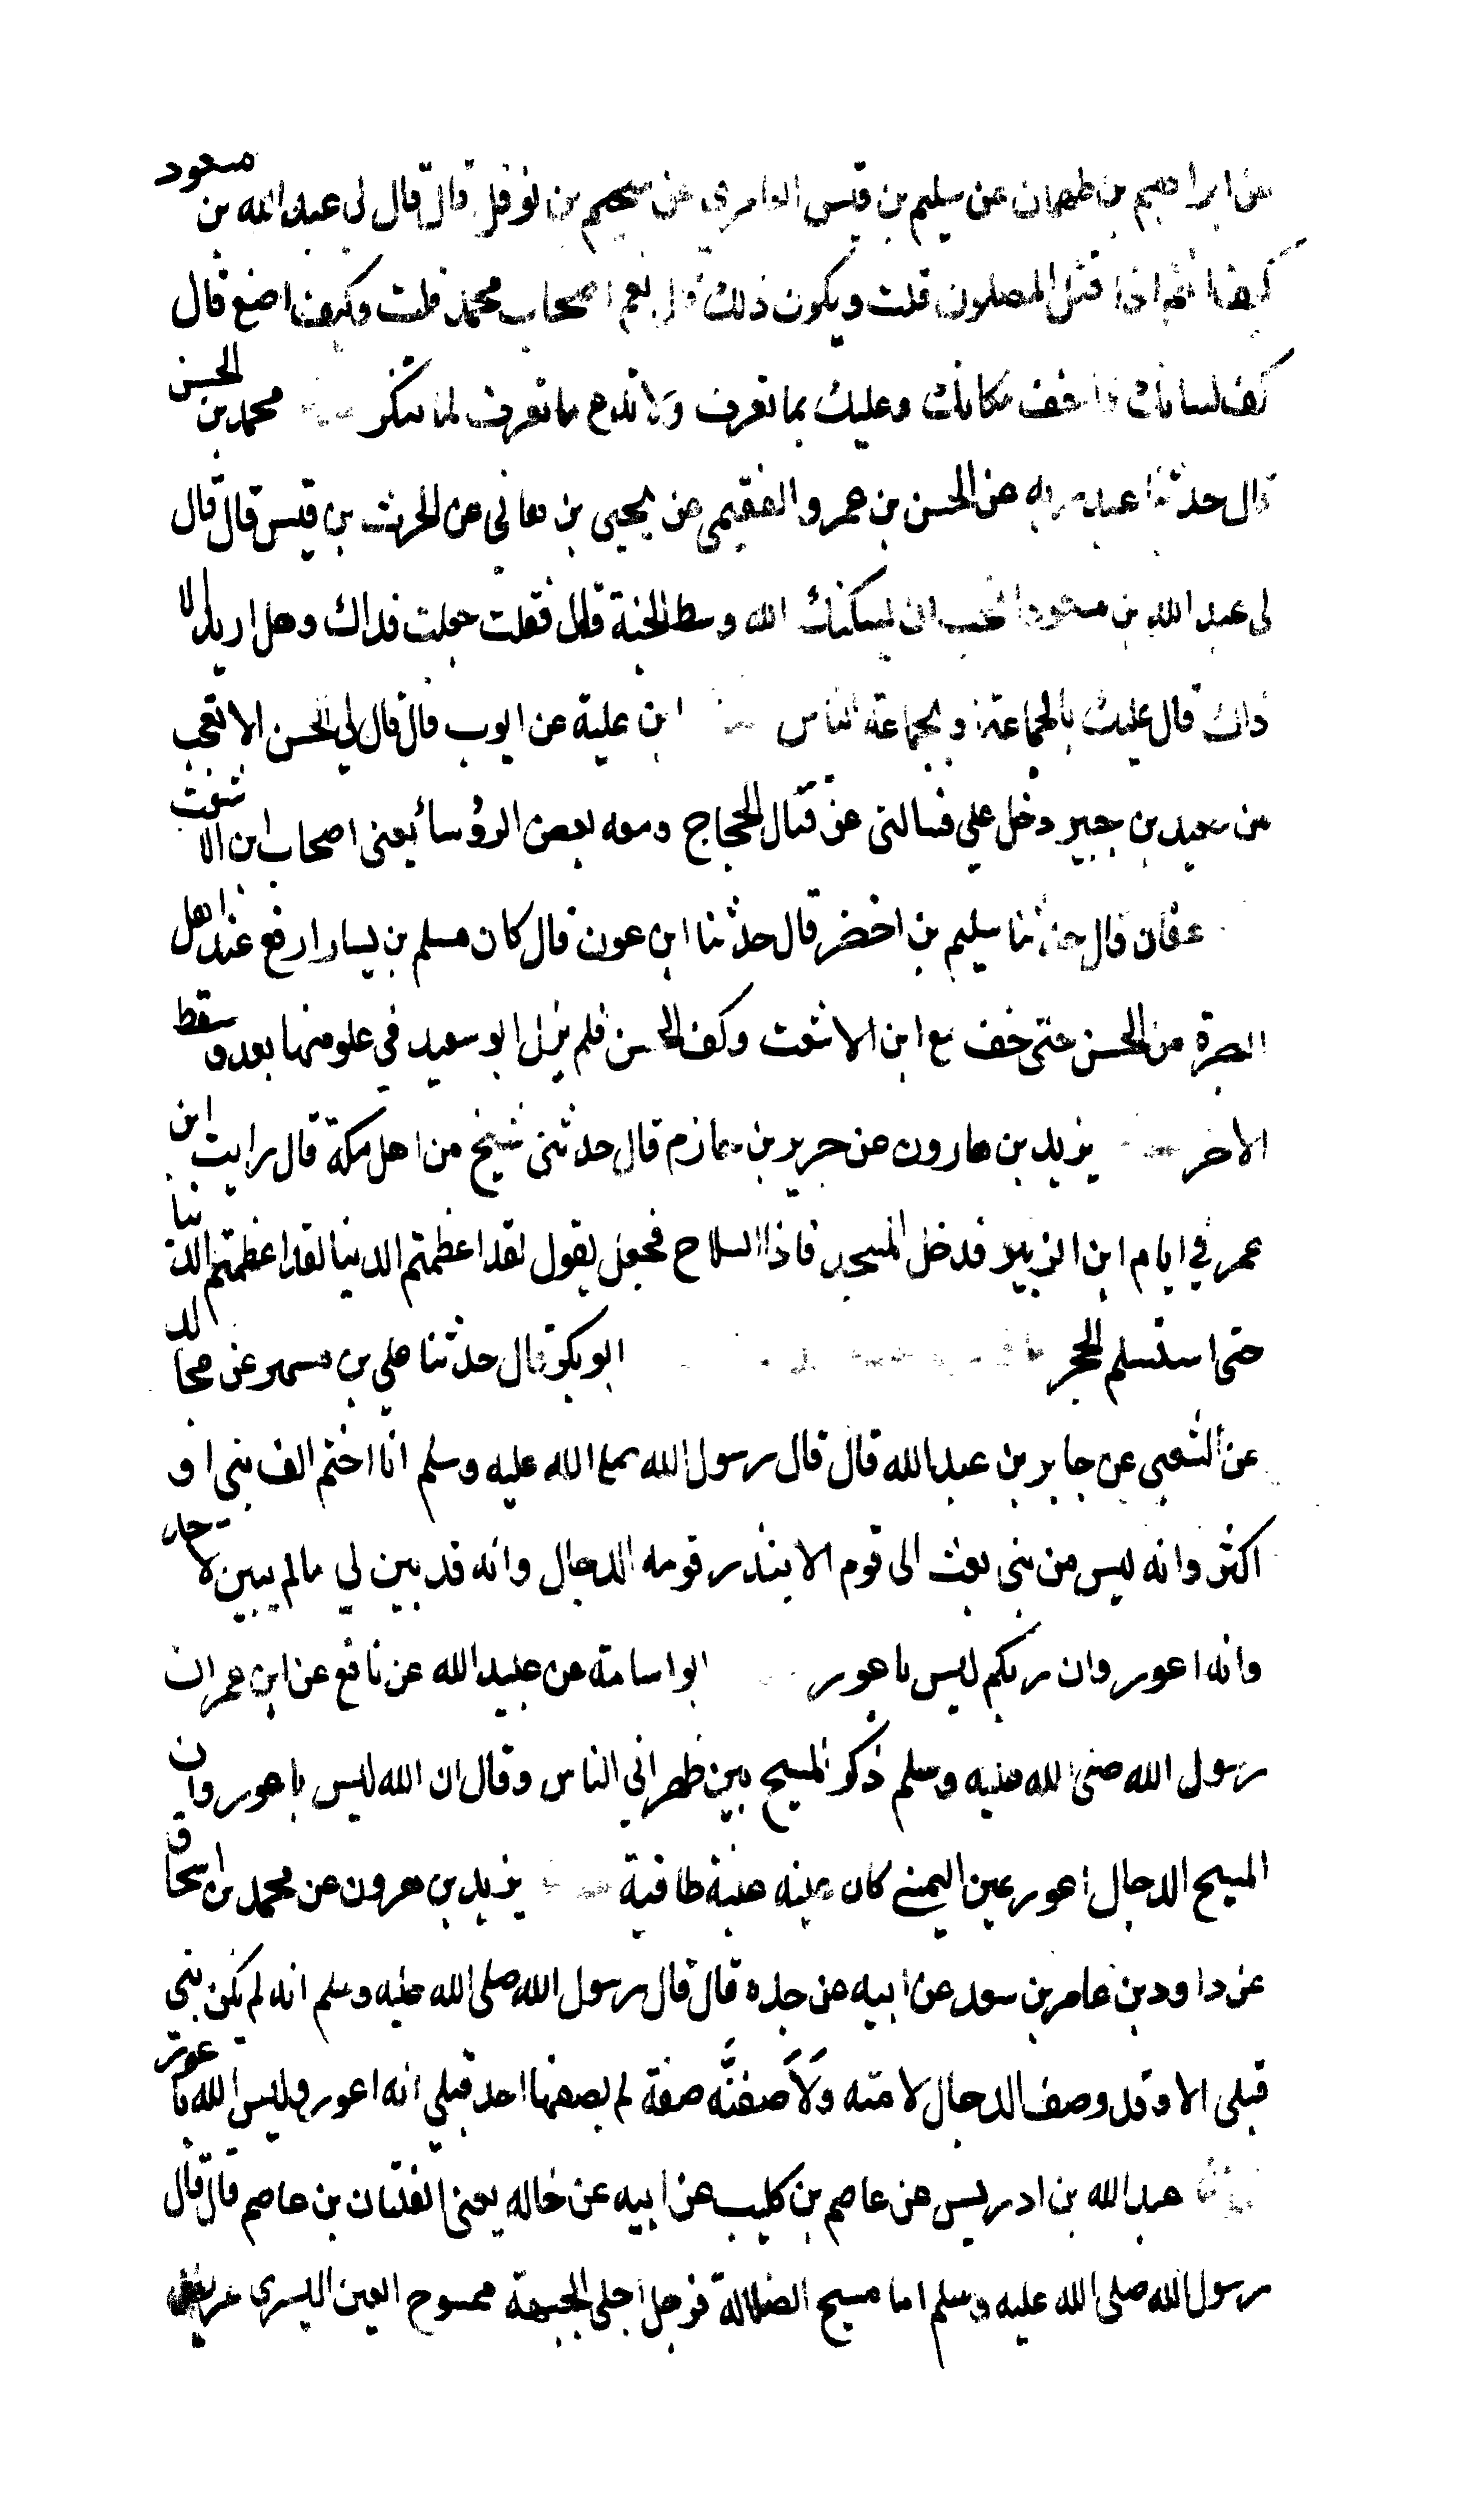 عن ابراهيم بن طهمان عن سليم بن قيس العامري عن سحيم بن نوفل قال قال لي عبد الله بن مسعود
كيف انتم اذا قتل المصلون قلت ويكون ذلك قال نعم اصحاب محمد قلت وكيف اصنع قال
كف لسانك واخف مكانك وعليك بما تعرف ولا تدع ما تعرف لما تنكر محمد بن الحسن
قال حدثنا عبد ربه عن الحسن بن عمرو الفقيمي عن يحيى بن هاني عن الحرث بن قيس قال قال
لي عبد الله بن مسعود اتحب ان يسكنك الله وسط الجنة قال فقلت جعلت فداك وهل اريد الا
ذاك قال عليك بالجماعة او بجماعة الناس ابن علية عن ايوب قال قال لي الحسن الا تعجب
من سعيد بن جبير دخل علي فسالني عن قتال الحجاج ومعه بعض الرؤسا يعني اصحاب ابن الاشعث
عفان قال حدثنا سليم بن اخضر قال حدثنا ابن عون قال كان مسلم بن يسار ارفع عند اهل
البصرة من الحسن حتى خف مع ابن الاشعث وكف الحسن فلم يزل ابو سعيد في علو منها بعد وسقط
الاخر يزيد بن هارون عن جرير بن حازم قال حدثني شيخ من اهل مكة قال رايت ابن
عمر في ايام ابن الزبير فدخل المسجد فاذا السلاح فجعل يقول لقد اعظمتم الدنيا لقد اعظمتم الدنيا
حتى استلم الحجر ابو بكر قال حدثنا علي بن مسهر عن مجالد
عن الشعبي عن جابر بن عبد الله قال قال رسول الله صلى الله عليه وسلم انا اختم الف نبي او
اكثر وانه ليس من نبي بعث الى قوم الا ينذر قومه الدجال وانه قد بين لي ما لم يبين لاحد
وانه اعور وان ربكم ليس باعور ابو اسامة عن عبيد الله عن نافع عن ابن عمر ان
رسول الله صلى الله عليه وسلم ذكر المسيح بين ظهراني الناس وقال ان الله ليس باعور وان
المسيح الدجال اعور عين اليمنى كان عينه عنبة طافية يزيد بن هرون عن محمد بن اسحاق
عن داود بن عامر بن سعد عن ابيه عن جده قال قال رسول الله صلى الله عليه وسلم انه لم يكن نبي
قبلي الا وقد وصف الدجال لامته وَلَاَصفنَّه صفة لم يصفها احد قبلي انه اعور وليس الله باعور
عبد الله بن ادريس عن عاصم بن كليب عن ابيه عن خاله يعني الفلتان بن عاصم قال قال
رسول الله صلى الله عليه وسلم اما مسيح الضلالة فرجل اجلى الجبهة ممسوح العين اليسرى عريض